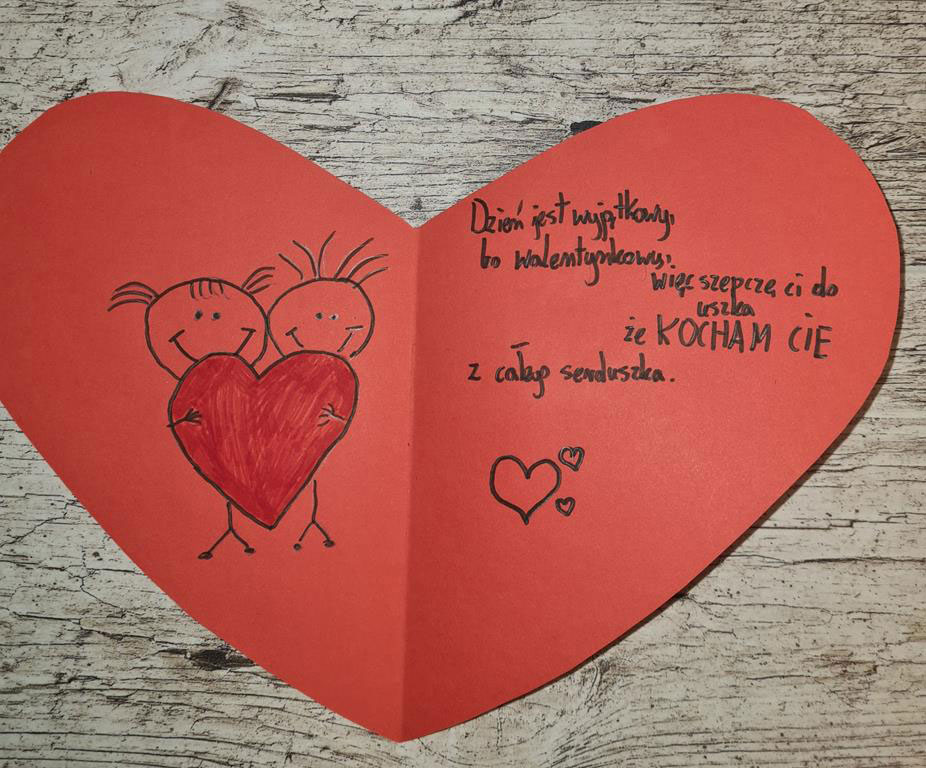 Dzień jest wyjątkowy,
bo walentynkowy,
więc szepczę ci do
uszka
że KOCHAM CIĘ
z całego serduszka.